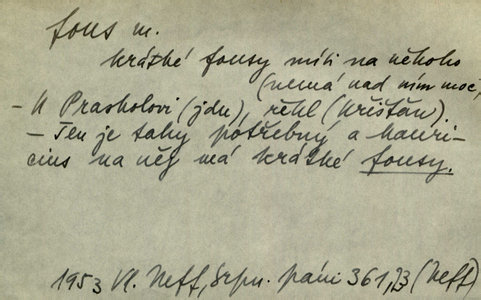 fous m.
krátké fousy míti na někoho
(nemá nad ním moc)
- K Praskolovi (jdu), řekl (Křišťan).
- Ten je taky potřebný a Mauri-
cius na něj má krátké fousy.
1953 Vl. Neff, Srpn. páni 361, (Neff)